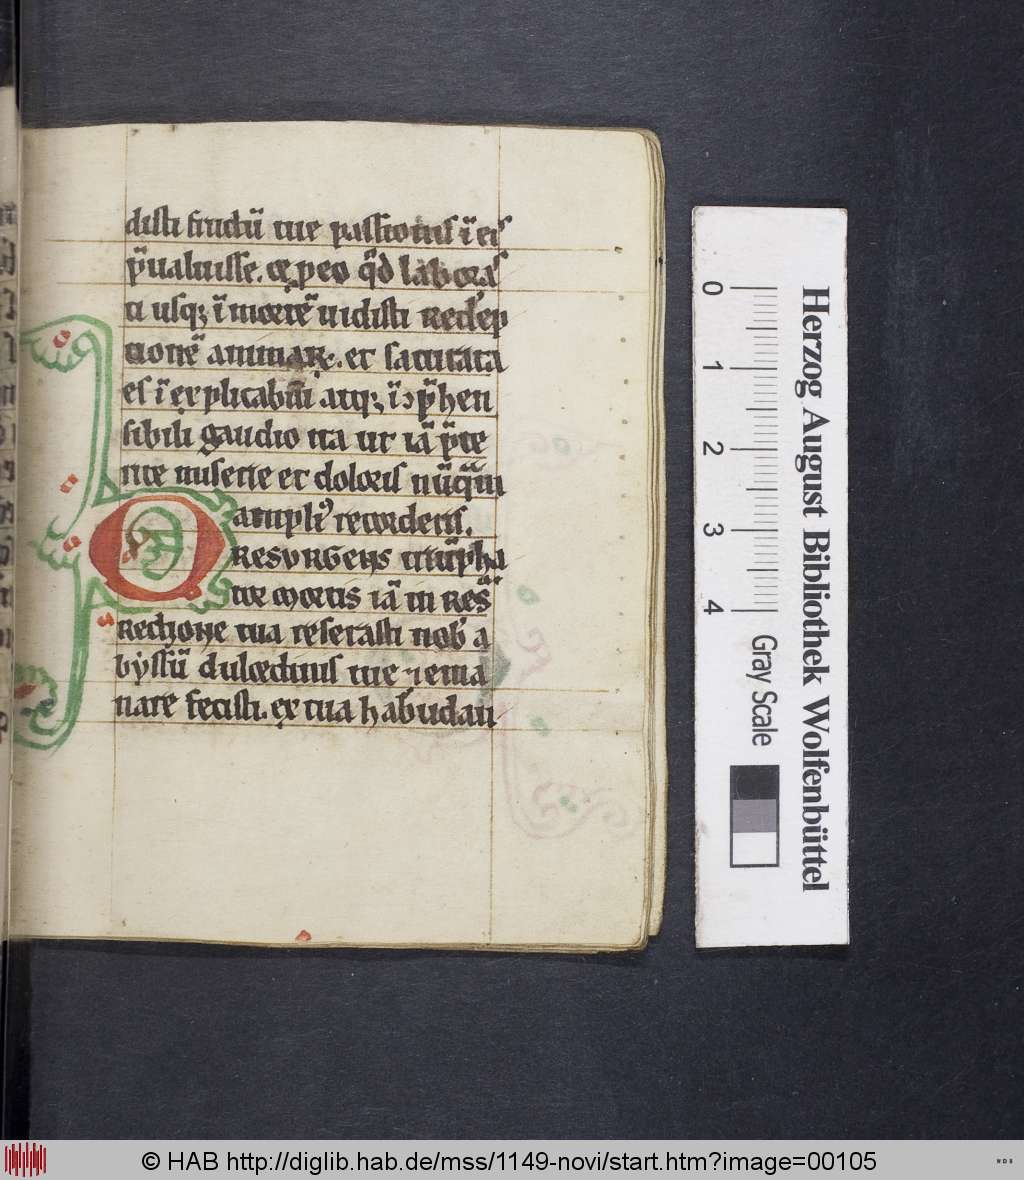 disti fructū tue passionis ī eis
p̄ualuisse. et p eo q̄d laboras
ti usqꝫ ī mortē uidisti Redēp
tionē animaꝝ. et saturata
es ī exp̱licabili atqꝫ īɔp̄hen
sibili gaudio ita ut iā p̄te
rite miserie et doloris nūq̄m
ampli⁹ recorderis.
O
RESURGENS
tor mortis iā in Res̄
Rectione tua reserasti nob̓ a
byssū dulcedinis tue ⁊ ema
nare fecisti. ex tua habūdan
0
1
2
3
4
Gray Scale
Herzog August Bibliothek Wolfenbüttel
© HAB http://diglib.hab.de/mss/1149-novi/start.htm?image=00105